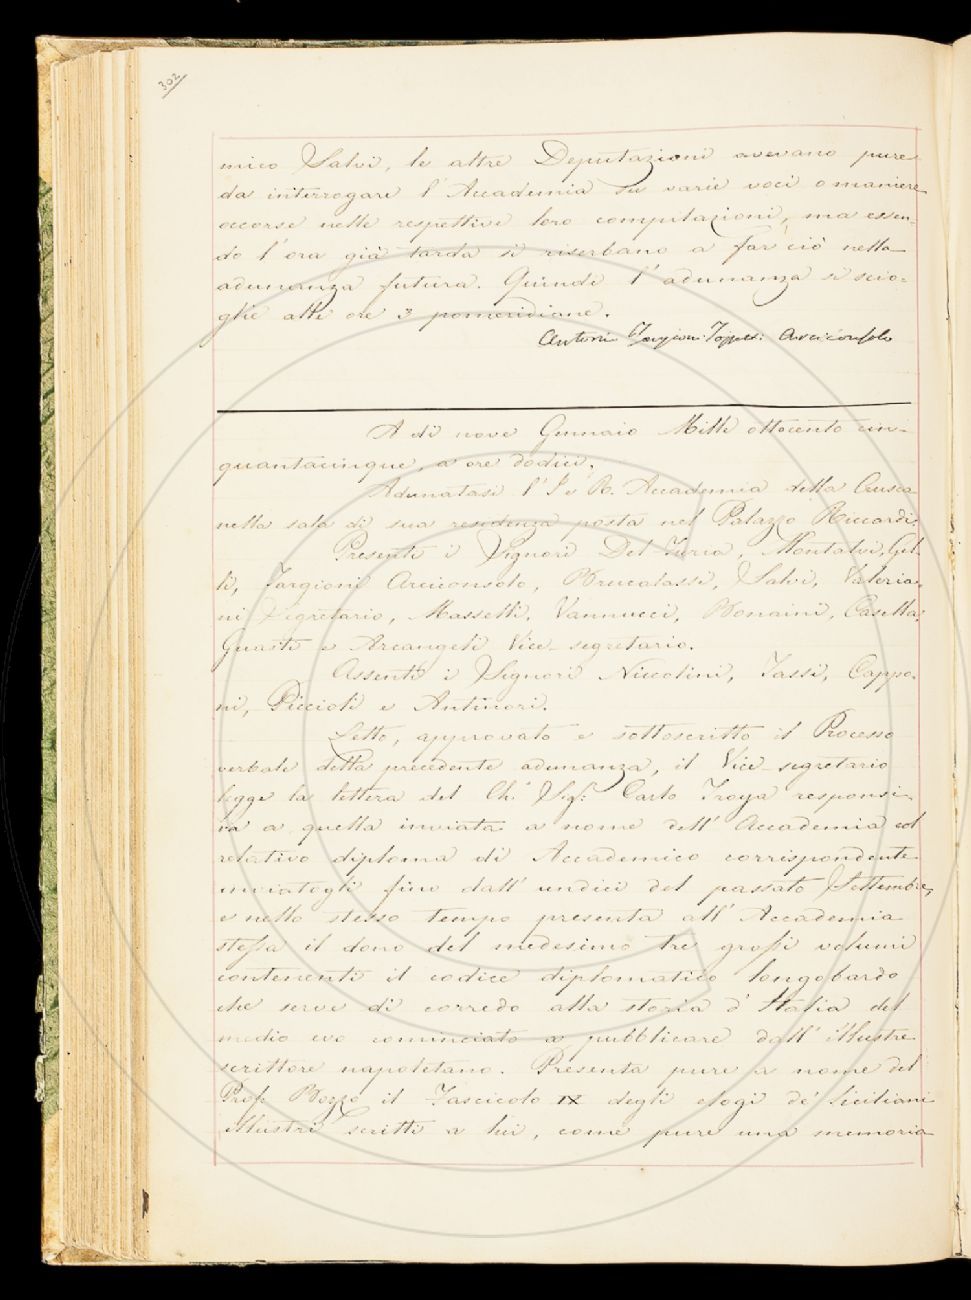 302
mico Salvi, le altre Deputazioni avevano pure
da interrogare l'Accademia su varie voci o maniere
occorse nelle respettive loro compilazioni, ma essen-
do l'ora già tarda si riserbano a far ciò nella
adunanza futura. Quindi l'adunanza si scio-
glie alle ore 3 pomeridiane.
Antonio Targioni-Tozzetti Arciconsolo
A dì nove Gennaio Mille ottocento cin-
quantacinque, a ore dodici.
Adunatasi l'I. e R. Accademia della Crusca
nella sala di sua residenza posta nel Palazzo Riccardi:
Presenti i Signori Del-Furia, Montalvi, Gel-
li, Targioni Arciconsolo, Brucalassi, Salvi, Valeria-
ni Segretario, Masselli, Vannucci, Bonaini, Casella,
Guasti e Arcangeli Vice-segretario.
Assenti i Signori Niccolini, Tassi, Cappo-
ni, Piccioli e Antinori.
Letto, approvato e sottoscritto il Processo
verbale della precedente adunanza, il Vice-segretario
legge la lettera del Ch. Sig. Carlo Troya responsi-
va a quella inviata a nome dell'Accademia col
relativo diploma di Accademico corrispondente
inviatogli fino dall'undici del passato Settembre,
e nello stesso tempo presenta all'Accademia
stessa il dono del medesimo tre grossi volumi
contenenti il codice diplomatico longobardo
che serve di corredo alla storia d'Italia del
medio evo cominciato a pubblicare dall'illustre
scrittore napoletano. Presenta pure a nome del
Prof. Bozzo il Fascicolo IX degli elogi de' Siciliani
illustri scritti a lui, come pure una memoria